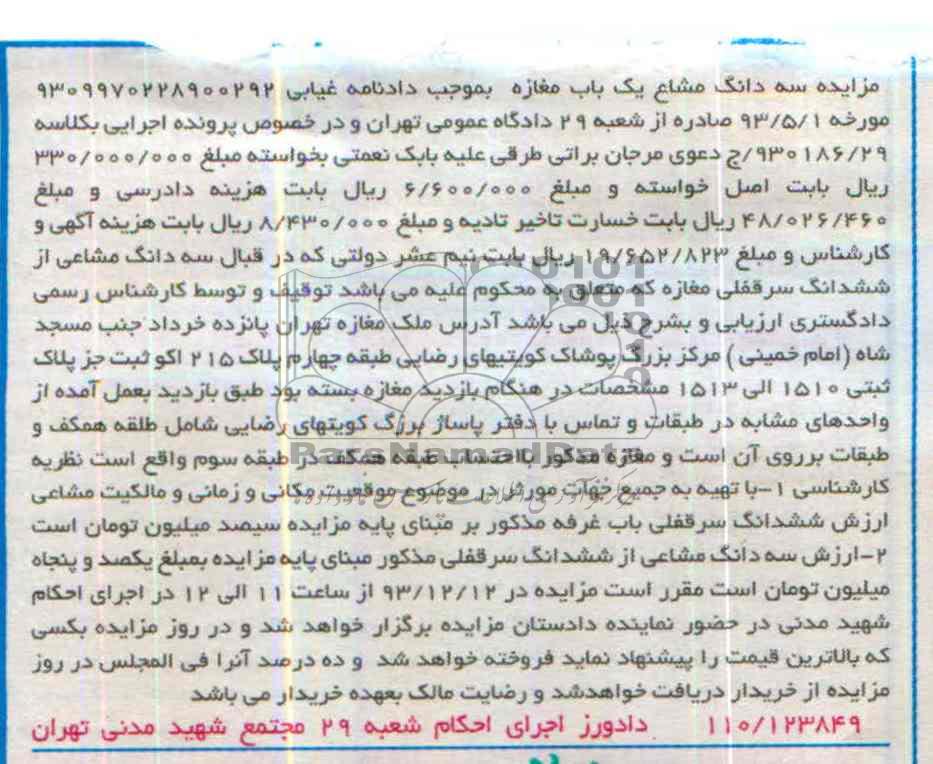 مزایده سه دانگ مشاع یک باب مغازه بموجب دادنامه غیابی ۹۳۰۹۹۷۰۲۲۸۹۰۰۲۹۲
مورخه ۹۳/۵/۱ صادره از شعبه ۲۹ دادگاه عمومی تهران و در خصوص پرونده اجرایی بکلاسه
۹۳۰۱۸۶/۲۹/ج دعوی مرجان براتی طرقی علیه بابک نعمتی بخواسته مبلغ ۳۳۰/۰۰۰/۰۰۰
ریال بابت اصل خواسته و مبلغ ۶/۶۰۰/۰۰۰ ریال بابت هزینه دادرسی و مبلغ
۴۸/۰۲۶/۴۶۰ ریال بابت خسارت تاخیر تادیه و مبلغ ۸/۴۳۰/۰۰۰ ریال بابت هزینه آگهی و
کارشناس و مبلغ ۱۹/۶۵۲/۸۲۳ ریال بابت نیم عشر دولتی که در قبال سه دانگ مشاعی از
ششدانگ سرقفلی مغازه که متعلق به محکوم علیه می باشد توقیف و توسط کارشناس رسمی
دادگستری ارزیابی و بشرح ذیل می باشد آدرس ملک مغازه تهران پانزده خرداد جنب مسجد
شاه (امام خمینی ) مرکز بزرگ پوشاک کویتیهای رضایی طبقه چهارم پلاک ۲۱۵ اکو ثبت جز پلاک
ثبتی ۱۵۱۰ الی ۱۵۱۳ مشخصات در هنگام بازدید مغازه بسته بود طبق بازدید بعمل آمده از
واحدهای مشابه در طبقات و تماس با دفتر پاساژ بزرگ کویتهای رضایی شامل طلقه همکف و
طبقات برروی آن است و مغازه مذکور بااحتساب طبقه همکف در طبقه سوم واقع است نظریه
کارشناسی ۱-با تهیه به جمیع جهات موثر در موضوع موقعیت مکانی و زمانی و مالکیت مشاعی
ارزش ششدانگ سرقفلی باب غرفه مذکور بر مبنای پایه مزایده سیصد میلیون تومان است
۲-ارزش سه دانگ مشاعی از ششدانگ سرقفلی مذکور مبنای پایه مزایده بمبلغ یکصد و پنجاه
میلیون تومان است مقرر است مزایده در ۹۳/۱۲/۱۲ از ساعت ۱۱ الی ۱۲ در اجرای احکام
شهید مدنی در حضور نماینده دادستان مزایده برگزار خواهد شد و در روز مزایده بکسی
که بالاترین قیمت را پیشنهاد نماید فروخته خواهد شد و ده درصد آنرا فی المجلس در روز
مزایده از خریدار دریافت خواهدشد و رضایت مالک بعهده خریدار می باشد
۱۱۰/۱۲۳۸۴۹ دادورز اجرای احکام شعبه ۲۹ مجتمع شهید مدنی تهران
ParsNamadData